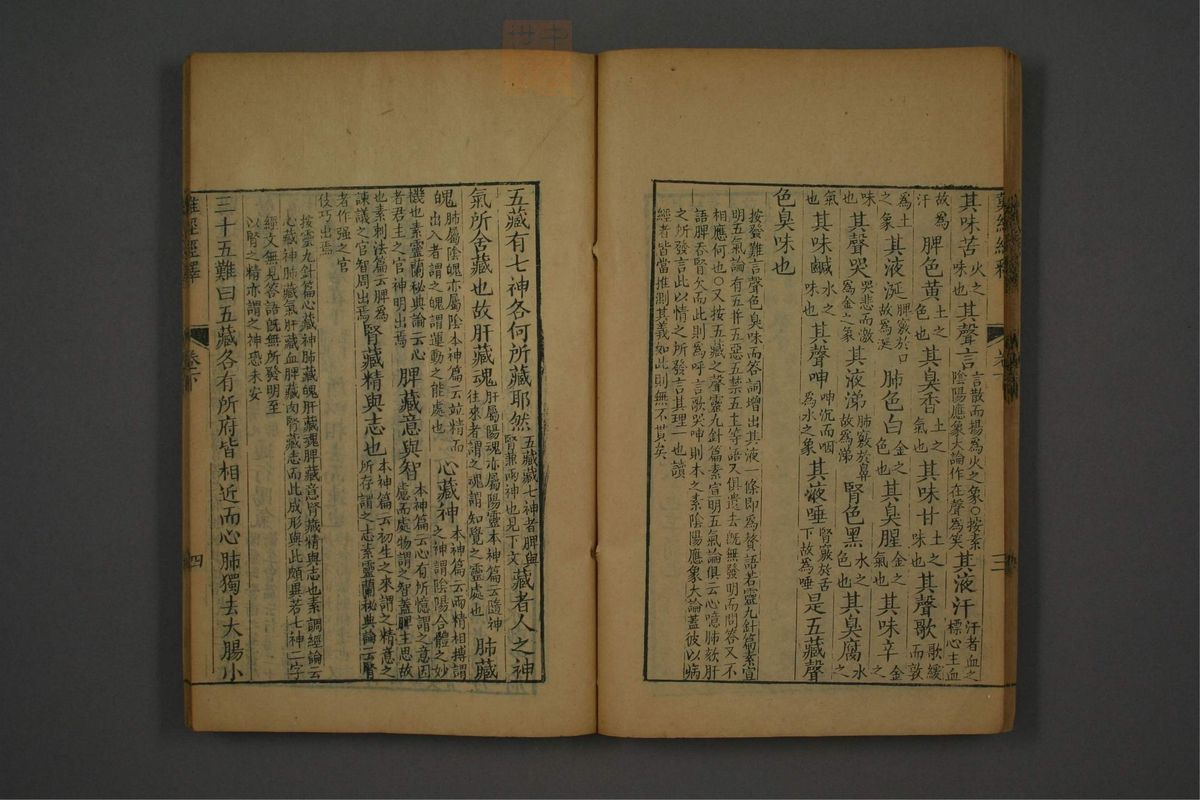 難經經釋 卷下 三
其味苦火之味也其聲言言散而揚為火之象○按素陰陽應象大論作在聲為笑其液汗汗者血之標心主血
故為汗脾色黃土之色也其臭香土之氣也其味甘土之味也其聲歌歌緩而敦
為土之象其液涎脾竅於口故為涎肺色白金之色也其臭腥金之氣也其味辛金之
味也其聲哭哭悲而激為金之象其液涕肺竅於鼻故為涕腎色黑水之色也其臭腐水之
氣也其味鹹水之味也其聲呻呻沉而咽為水之象其液唾腎竅於舌下故為唾是五藏聲
色臭味也
按發難言聲色臭味而答詞增出其液一條即為贅語若靈九針篇素宣
明五氣論有五并五惡五禁五主等語又俱遺去旣無發明而問答又不
相應何也○又按五藏之聲靈九針篇素宣明五氣論俱云心噫肺欬肝
語脾吞腎欠而此則為呼言歌哭呻則本之素陰陽應象大論蓋彼以病
之所發言此以情之所發言其理一也讀
經者皆當推測其義如此則無不貫矣
五藏有七神各何所藏耶然五藏藏七神者脾與腎兼兩神也見下文藏者人之神
氣所舍藏也故肝藏魂肝屬陽魂亦屬陽靈本神篇云隨神往來者謂之魂謂知覺之靈處也肺藏
魄肺屬陰魄亦屬陰本神篇云並精而出入者謂之魄謂運動之能處也心藏神本神篇云兩精相搏謂之神謂陰陽合體之妙
機也素靈蘭秘典論云心者君主之官神明出焉脾藏意與智本神篇云心有所憶謂之意因慮而處物謂之智蓋脾主思故
也素刺法篇云脾為諫議之官智周出焉腎藏精與志也本神篇云初生之來謂之精意之所存謂之志素靈蘭秘典論云腎
者作强之官伎巧出焉
按靈九針篇心藏神肺藏魄肝藏魂脾藏意腎藏精與志也素調經論云
心藏神肺藏氣肝藏血脾藏肉腎藏志而此成形與此頗異若七神二字
經文無見答語旣無所發明至
以腎之精亦謂之神恐未安
三十五難曰五藏各有所府皆相近而心肺獨去大腸小
難經經釋 卷下 四